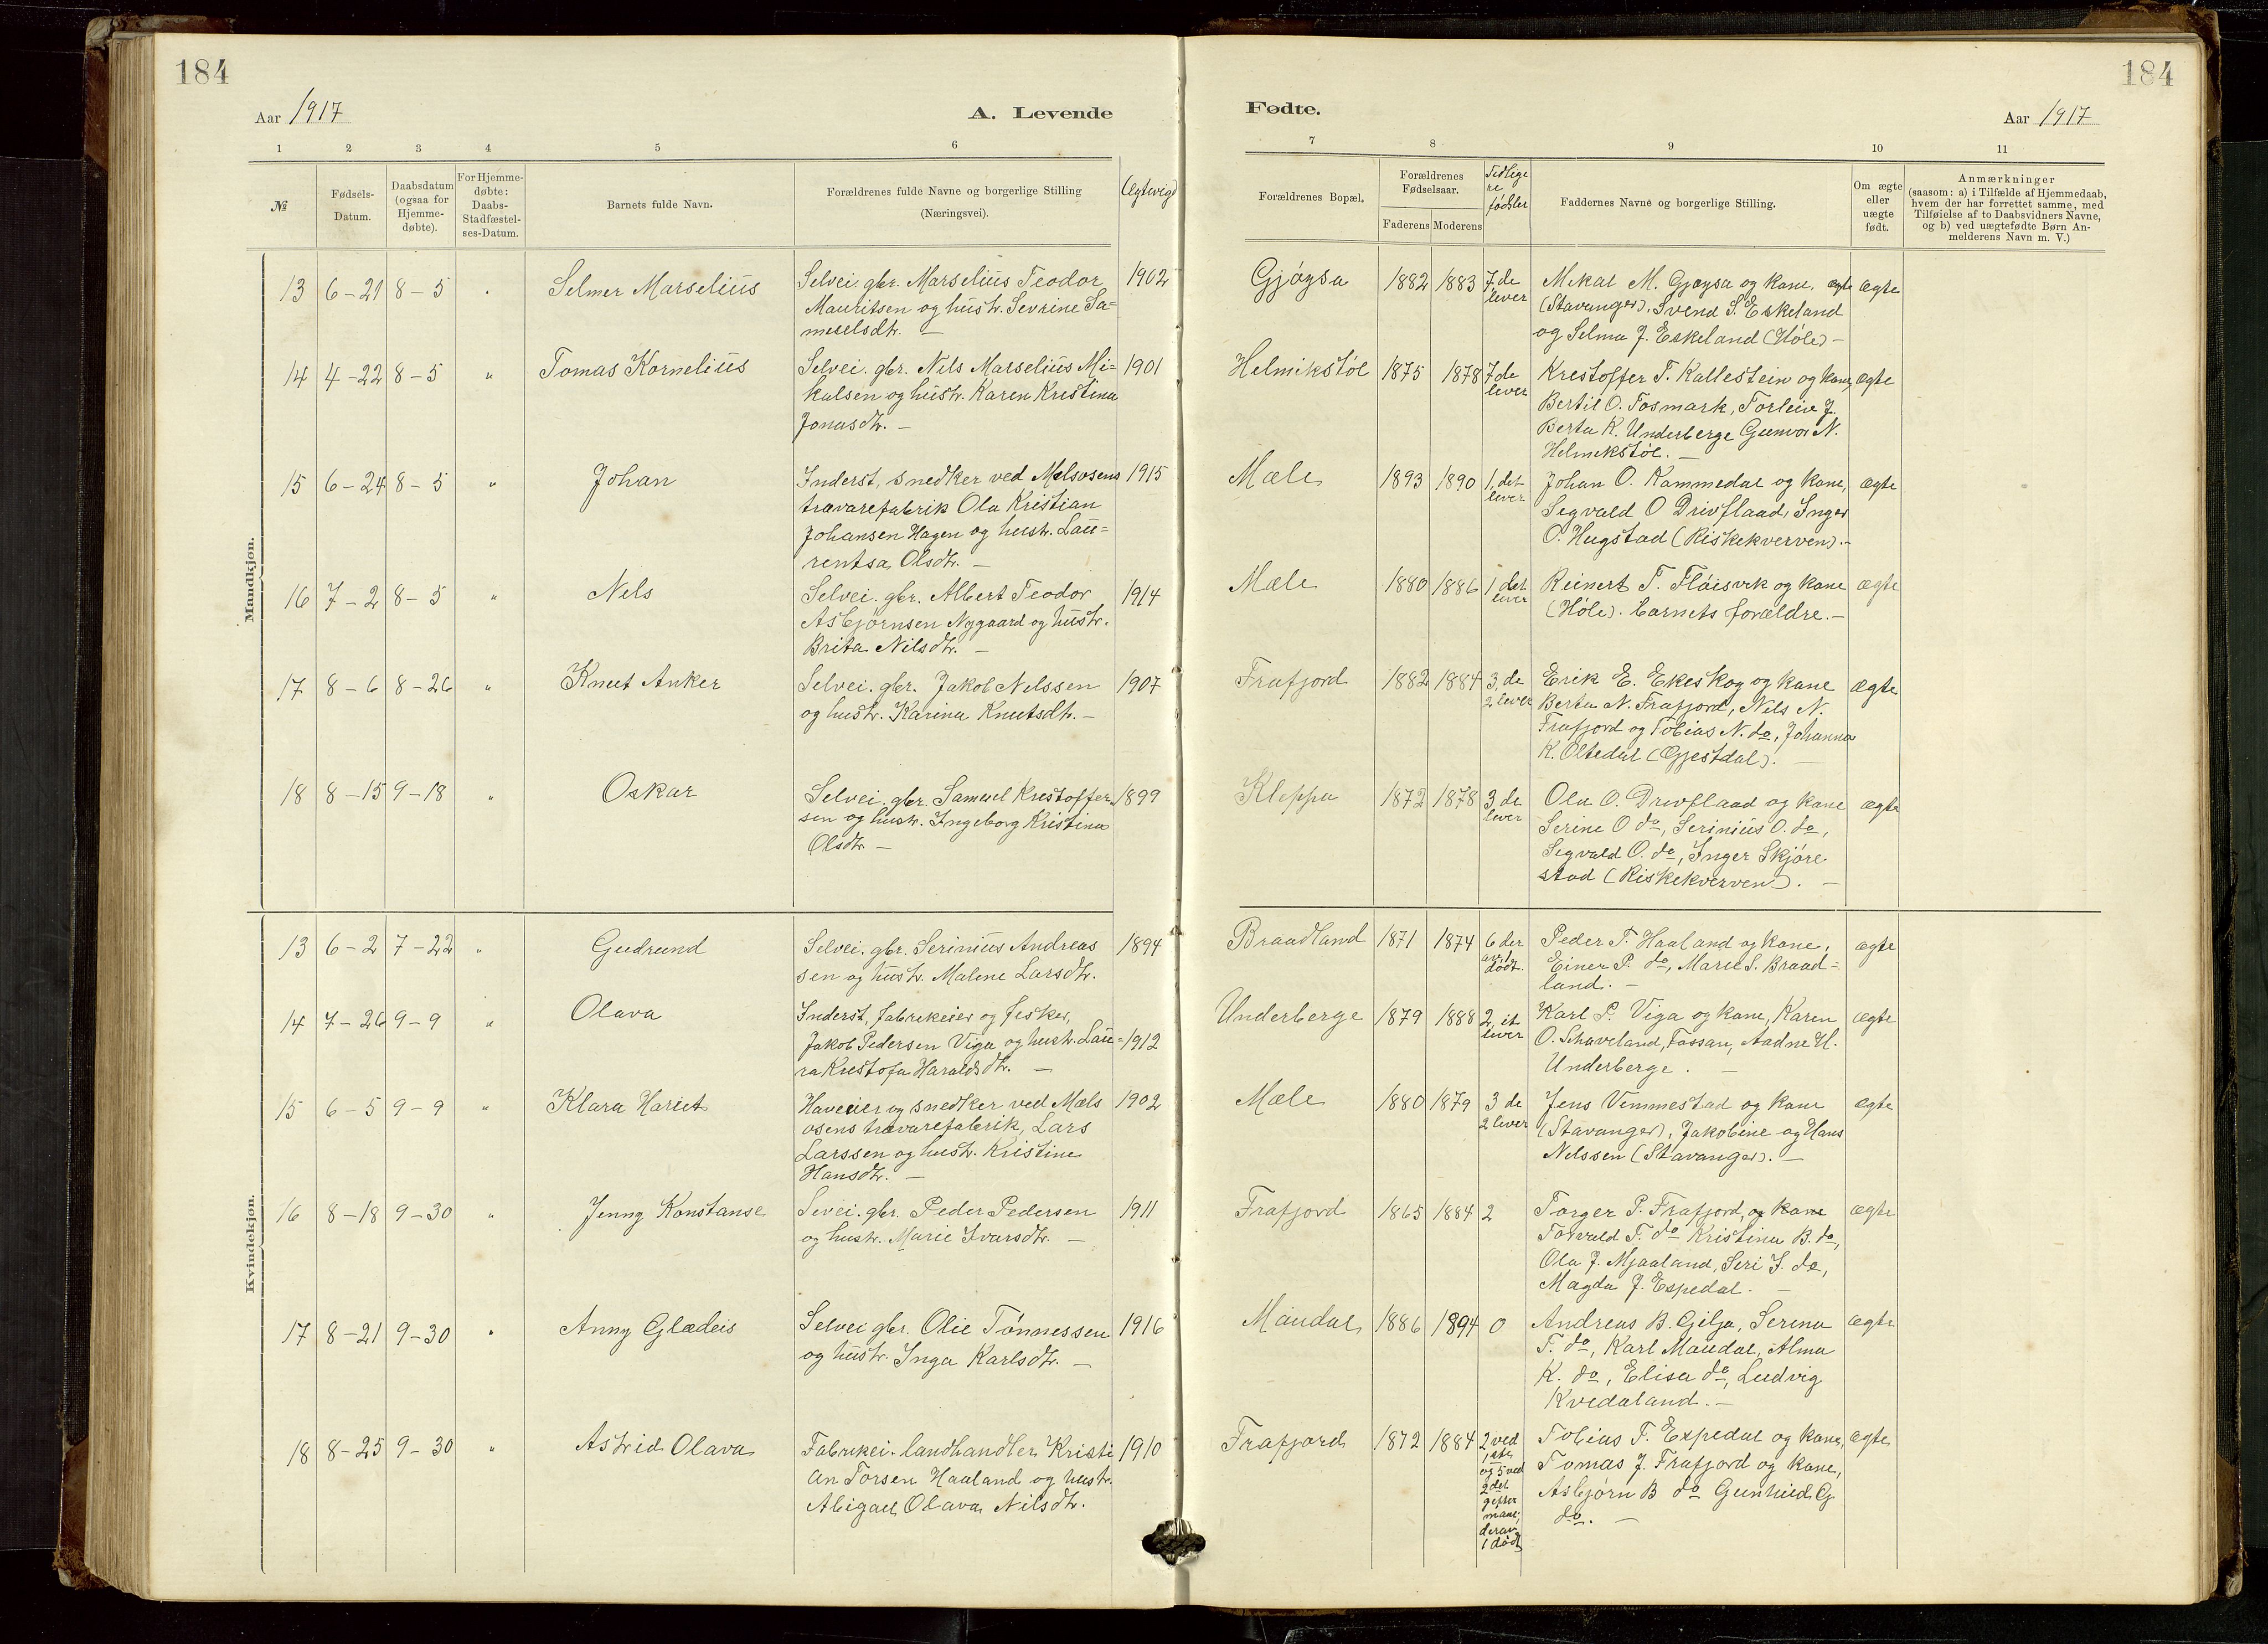 184
184
Aar 1917
A. Levende
Fødte.
Aar 1917
1 2 3 4 5 6
7 8 9 10 11
№
Fødsels-
Datum.
Daabsdatum
(ogsaa for
Hjemme-
døbte).
For Hjemme-
døbte:
Daabs-
Stadfæstel-
ses-Datum.
Barnets fulde Navn.
Forældrenes fulde Navne og borgerlige Stilling
(Næringsvei).
Forældrenes Bopæl.
Forældrenes
Fødselsaar.
Faderens Moderens
Tidlige
re
fødsler
Faddernes Navne og borgerlige Stilling.
Om ægte
eller
uægte
født.
Anmærkninger
(saasom: a) i Tilfælde af Hjemmedaab,
hvem der har forrettet samme, med
Tilføielse af to Daabsvidners Navne,
og b) ved uægtefødte Børn An-
melderens Navn m. V.)
Mandkjøn.
13 6-21 8-5 Selmer Marselius
Selvei gbr. Marselius Teodor 1902
Mauritsen og hustr. Sevrine Sa=
muelsdtr. —
Gjøysa 1882 1883 7, de
lever
Mikal M. Gjøysa og kone, ægte
(Stavanger). Svend S. Eskeland
og Selma J. Eskeland (Høle) —
14 4-22 8-5 " Tomas Kornelius
Selvei. gbr. Nils Marselius Mi= 1901
kalsen og hustr. Karen Kristina
Jonasdtr. —
Helmikstøl 1875 1878 7 de
lever
Kristoffer T. Kallestein og kone, ægte
Bertil O. Fosmark, Torleiv J.
Berta K. Underberge Gunvor N.
Helmikstøl. —
15 6-24 8-5 " Johan
Inderst, snedker ved Mælsosens 1915
trævarefabrik Ola Kristian
Johansen Hagen og hustr. Lau=
rentsa Olsdtr. —
Mæle 1893 1890 1, det
lever
Johan O. Kommedal og kone, ægte
Sigvald O Drivflaad, Inger
O. Hugstad (Riskekverven). —
16 7-2 8-5 " Nels
Selvei. gbr. Albert Teodor 1914
Asbjørnsen Nygaard og hustr.
Brita Nilsdtr. —
Mæle 1880 1886 1 det
lever
Reinert T. Fløisvik og kone ægte
(Høle). barnets forældre. —
17 8-6 8-26 " Knut Anker
Selvei. gbr. Jakob Nelssen 1907
og hustr. Karina Knutsdtr. —
Frafjord 1882 1884 3, de
2 lever
Erik E. Ekeskog og kone ægte
Berta N. Frafjord, Nels N.
Frafjord og Tobias N. do, Johanna
K. Oltedal (Gjestdal). —
18 8-15 9-18 " Oskar
Selvei. gbr. Samuel Kristoffer 1899
sen og hustr. Ingeborg Kristina
Olsdtr —
Kleppa 1872 1878 3 de
lever
Ola O. Drivflaad og kone ægte
Serine O do, Serinius O. do,
Sigvald O. do, Inger Skjøre
stad (Riskekverven). —
Kvindekjøn.
13 6-2 7-22 " Gudrund
Selvei. gbr. Serinius Andreas 1894
sen og hustr. Malene Larsdtr.
Braadland 1871 1874 6 der
av 1
dødt.
Peder T. Haaland og kone, ægte
Einer P. do, Marie S. Braad=
land. —
14 7-26 9-9 " Olava
Inderst, fabrikeier og fisker,
Jakob Pedersen Viga og hustr. Lau= 1912
ra Kristofa Haraldsdtr. —
Underberge 1879 1888 2, it
lever
Karl P. Viga og kone, Karen ægte
O. Schaveland, Fossan, Aadne H.
Underberge. —
15 6-5 9-9 " Klara Hariet
Haveeier og snedker ved Mæls 1902
osens trævarefabrik, Lars
Larssen og hustr. Kristine
Hansdtr. —
Mæle 1880 1879 3 de
2 lever
Jens Vemmestad og kone ægte
(Stavanger), Jakobine og Hans
Nilssen (Stavanger). —
16 8-18 9-30 " Jenny Konstanse
Sevei. gbr. Peder Pedersen 1911
og hustr. Marie Ivarsdtr. —
Frafjord 1865 1884 2
Torger P. Frafjord, og kone ægte
Torvald T. do Kristina B. do,
Ola J. Mjaaland, Seri I. do,
Magda J. Espedal. —
17 8-21 9-30 " Anny Glædeis
Selvei gbr. Olie Tønnessen 1916
og hustr. Inga Karlsdtr. —
Maudal 1886 1894 0
Andreas B. Gilja, Serina ægte
T. do, Karl Maudal, Alma
K. do, Elisa do, Ludvig
Kvedaland. —
18 8-25 9-30 " Astrid Olava
Fabrikei. landhandler Kristi 1910
an Torsen Haaland og hustr.
Abigael Olava Nilsdtr.
Frafjord 1872 1884 2 ved
1ste
og 5 ved
2det
gifter
maal,
derav
1 dødt
Tobias T. Espedal og kone, ægte
Tomas J. Frafjord og kone,
Asbjørn B do Gunhild G
do. —